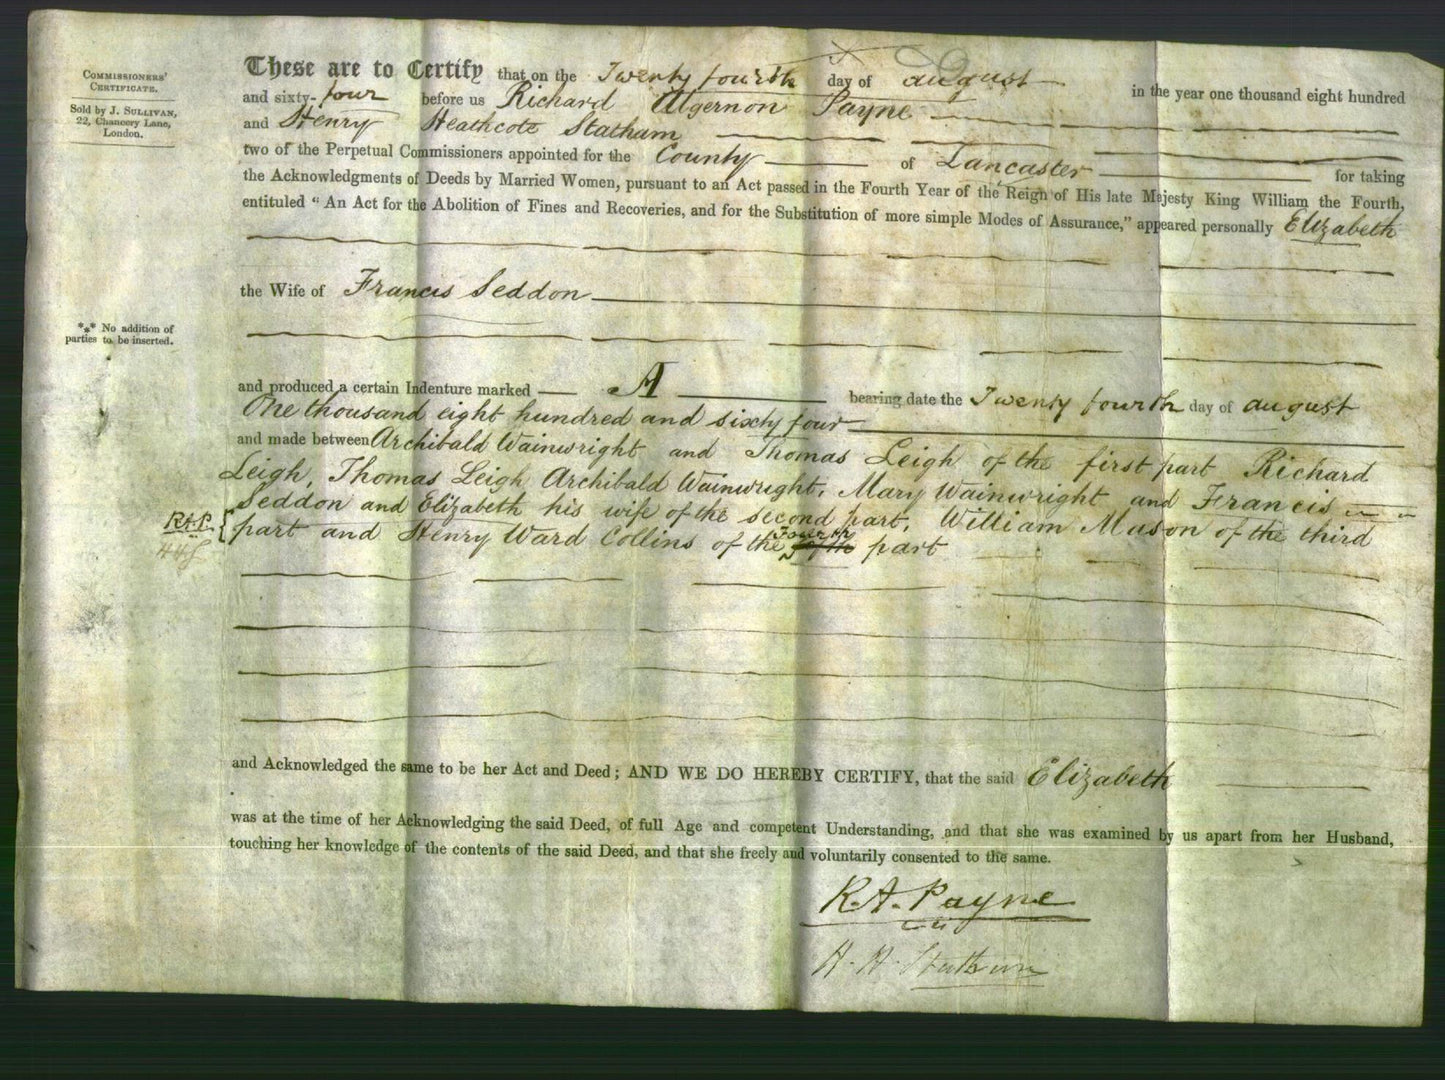 COMMISSIONERS'
CERTIFICATE.
Sold by J. SULLIVAN,
22, Chancery Lane,
London.
*** No addition of
parties to be inserted.
These are to Certify that on the Twenty fourth day of august in the year one thousand eight hundred
and sixty-four before us Richard Algernon Payne
and Henry Heathcote Statham
two of the Perpetual Commissioners appointed for the County of Lancaster for taking
the Acknowledgments of Deeds by Married Women, pursuant to an Act passed in the Fourth Year of the Reign of His late Majesty King William the Fourth,
entituled "An Act for the Abolition of Fines and Recoveries, and for the Substitution of more simple Modes of Assurance," appeared personally Elizabeth
the Wife of Francis Seddon
and produced a certain Indenture marked A bearing date the Twenty fourth day of august
One thousand eight hundred and sixty four
and made between Archibald Wainwright and Thomas Leigh of the first part Richard
Leigh, Thomas Leigh Archibald Wainwright, Mary Wainwright and Francis
Seddon and Elizabeth his wife of the second part, William Mason of the third
R.A.P. part and Henry Ward Collins of the fourth part
HHS
and Acknowledged the same to be her Act and Deed; AND WE DO HEREBY CERTIFY, that the said Elizabeth
was at the time of her Acknowledging the said Deed, of full Age and competent Understanding, and that she was examined by us apart from her Husband,
touching her knowledge of the contents of the said Deed, and that she freely and voluntarily consented to the same.
R. A. Payne
H. H. Statham